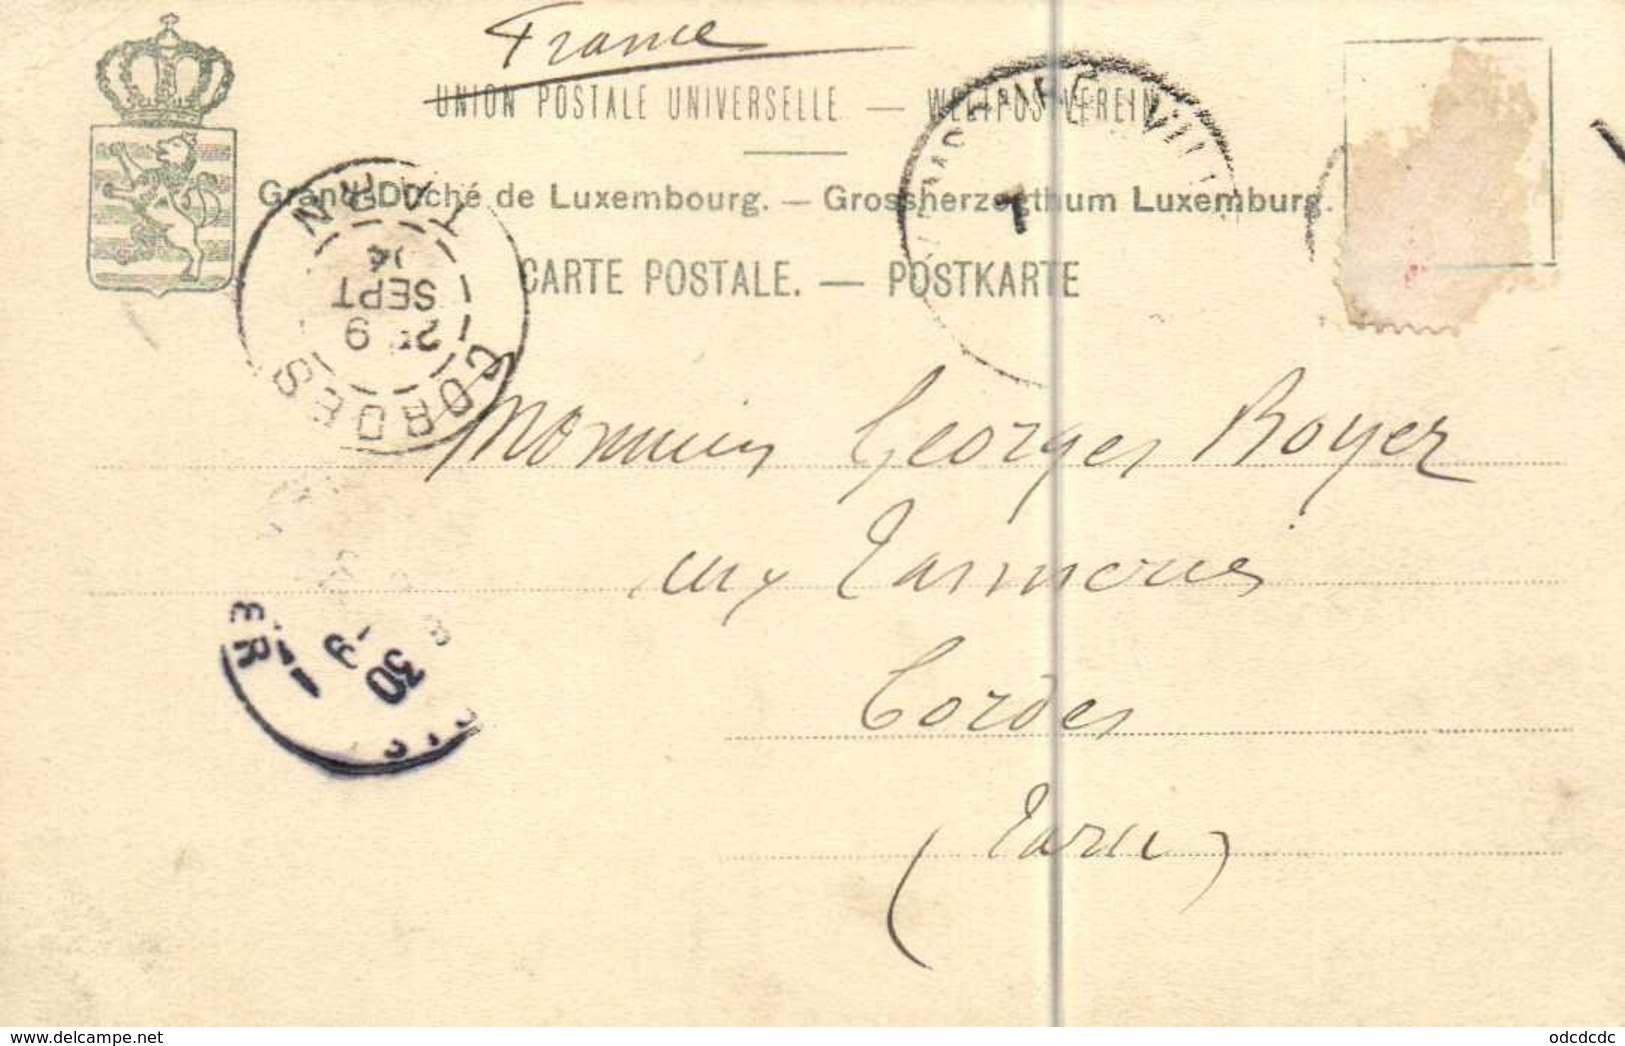 France
UNION POSTALE UNIVERSELLE — WELTPOSTVEREIN
Grand-Duché de Luxembourg. — Grossherzogthum Luxemburg.
CARTE POSTALE. — POSTKARTE
TARN
SEPT
CORDES
7
Monsieur Georges Boyer
aux
Cordes
(Tarn)
ER
9
30
www.delcampe.net
odcdcdc